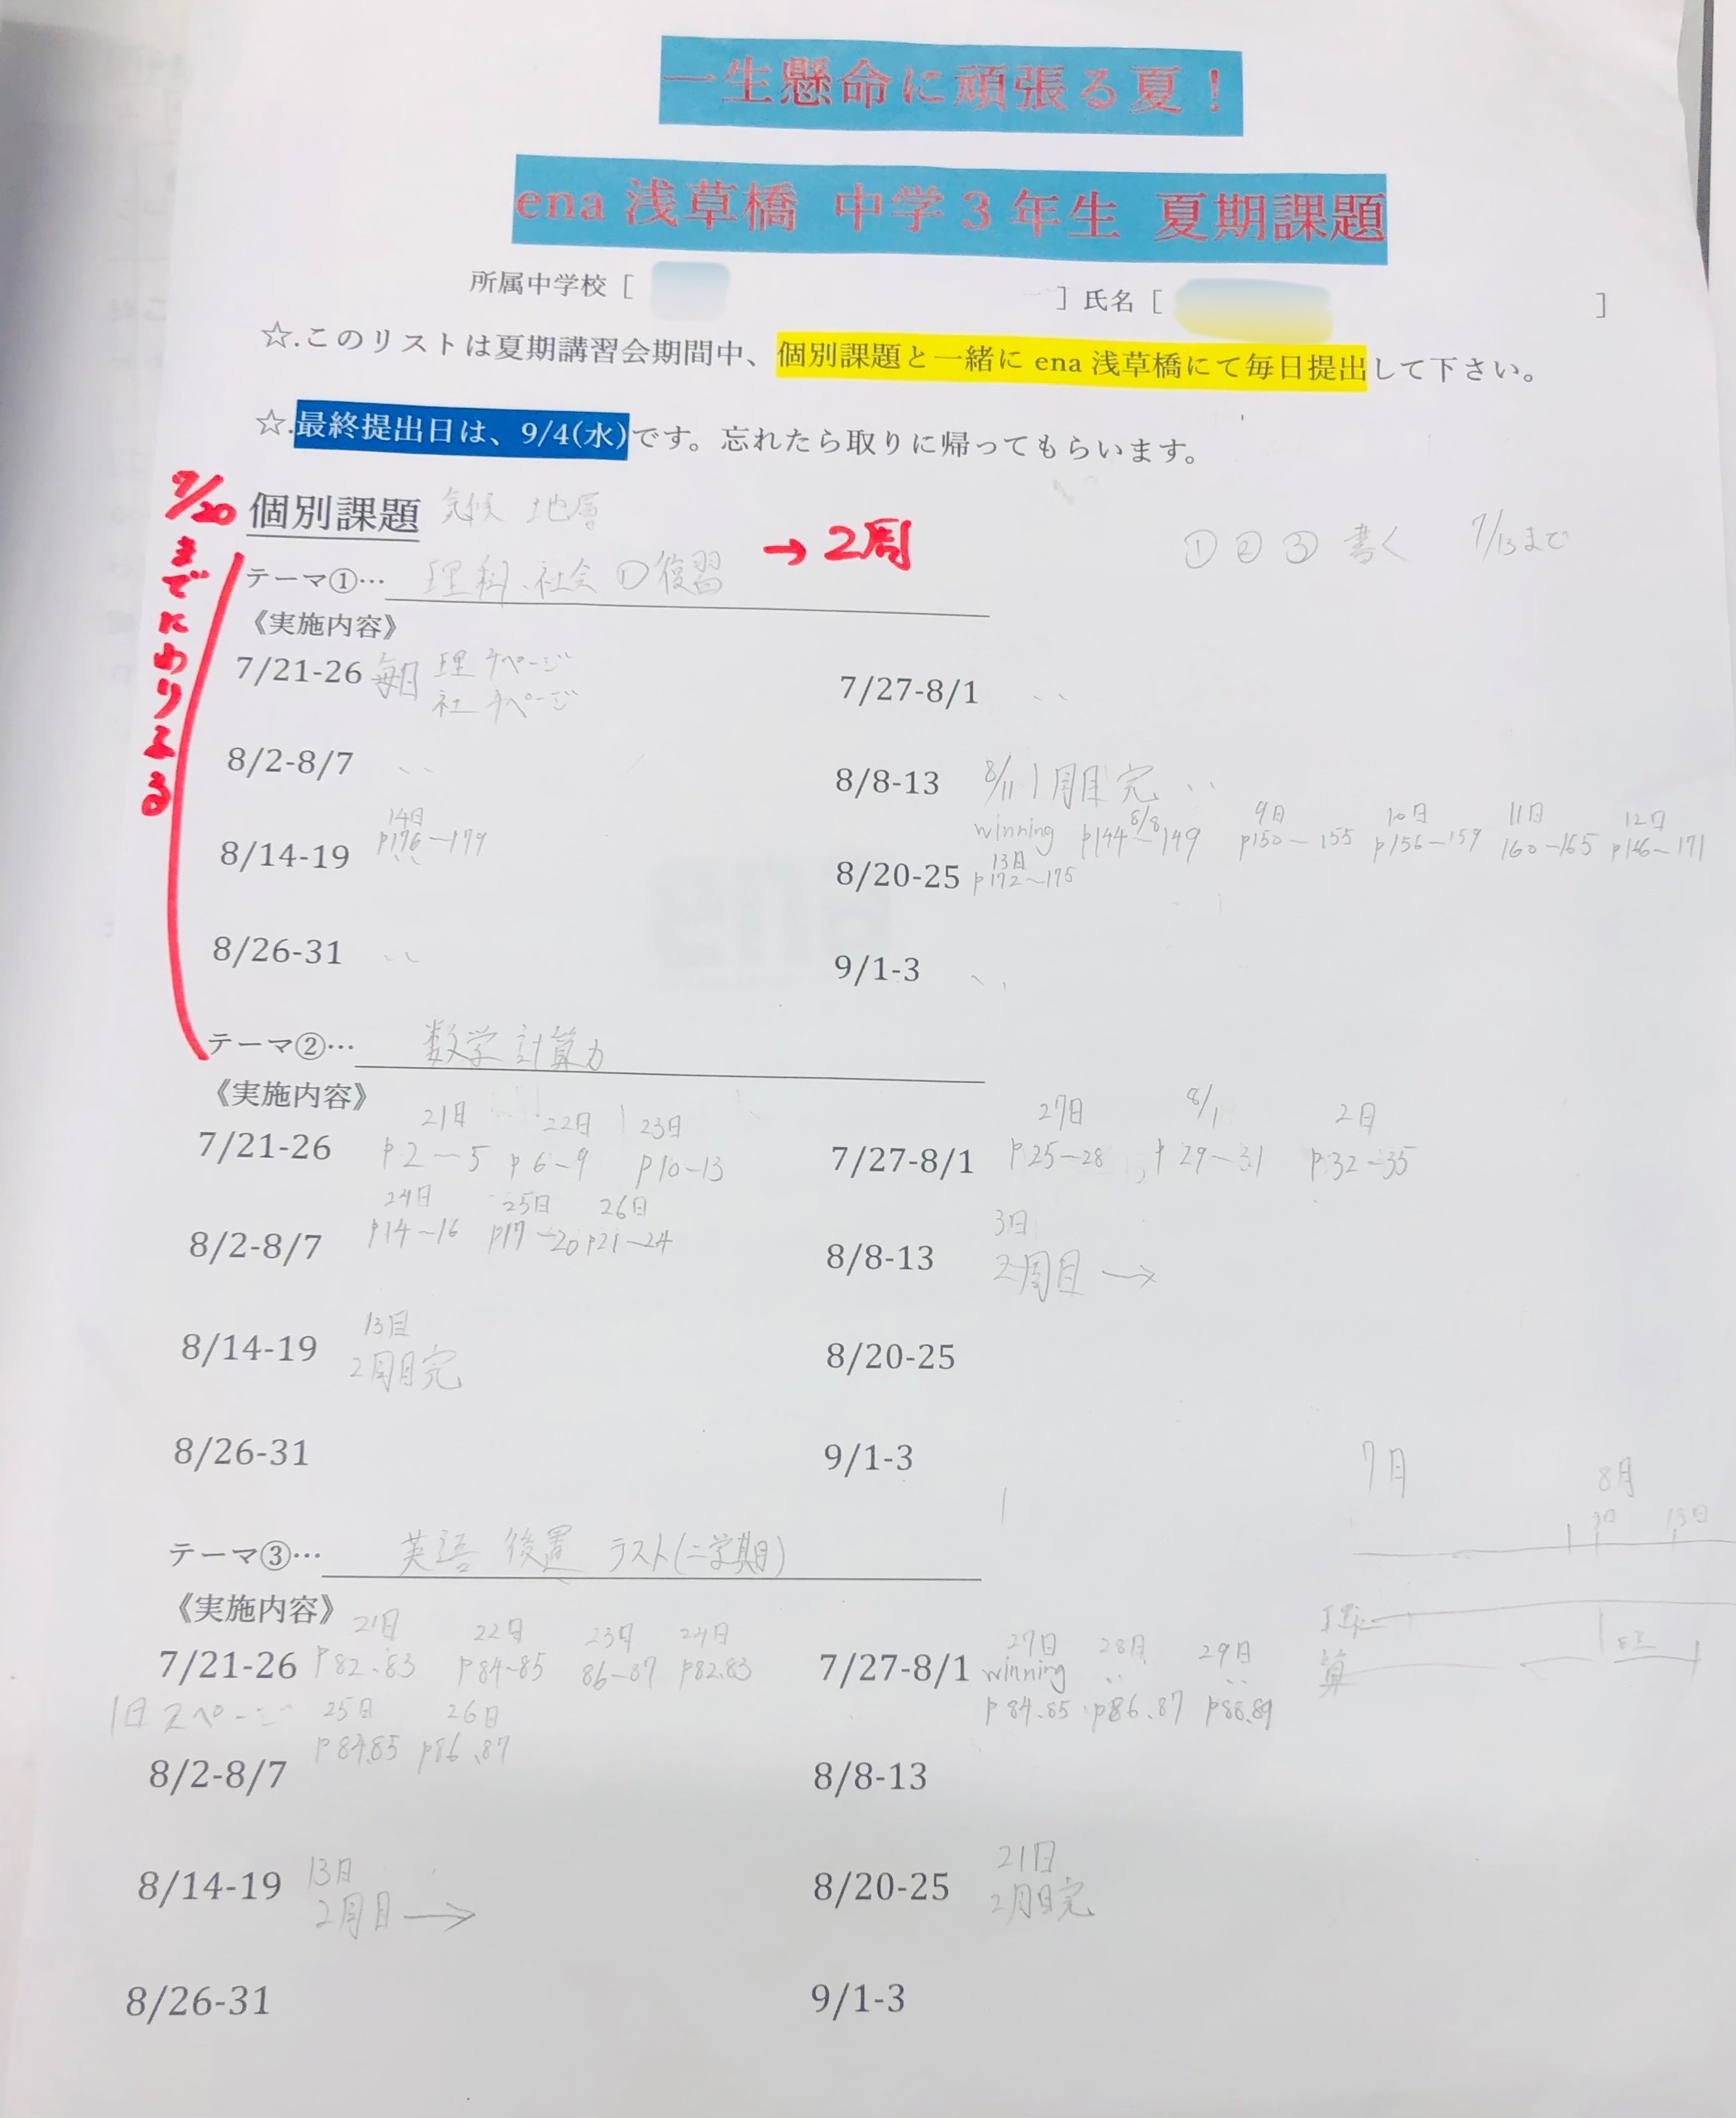 一生懸命に頑張る夏！
ena 浅草橋 中学3年生 夏期課題
所属中学校［ ］氏名［ ］
☆.このリストは夏期講習会期間中、個別課題と一緒に ena 浅草橋にて毎日提出して下さい。
☆.最終提出日は、9/4(水)です。忘れたら取りに帰ってもらいます。
7/20までにわりふる
個別課題 気候 地層
→2周
①②③ 書く 7/13まで
テーマ①… 理科、社会 ①復習
《実施内容》
7/21-26 毎日 理 チページ
社 チページ
7/27-8/1 〃
8/2-8/7 〃
8/8-13 8/11 1周目完 〃
winning 8/8 p144~149 9日 p150~155 10日 p156~159 11日 160~165 12日 p166~171
8/14-19 14日 p176~179 〃
8/20-25 13日 p172~175
8/26-31 〃
9/1-3 〃
テーマ②… 数学 計算力
《実施内容》
21日 22日 23日
7/21-26 p2~5 p6~9 p10~13
27日 8/1 2日
7/27-8/1 p25~28 p29~31 p32~35
24日 25日 26日
8/2-8/7 p14~16 p17~20 p21~24
3日
8/8-13 2周目→
13日
8/14-19 2周目完
8/20-25
8/26-31
9/1-3
7月 8月
13日
テーマ③… 英語 後置 テスト(二学期)
《実施内容》
21日 22日 23日 24日
7/21-26 p82.83 p84~85 86~87 p82.83
27日 28日 29日
7/27-8/1 winning 〃 〃
p84.85 p86.87 p88.89
理
算
1日2ページ 25日 26日
p84.85 p86.87
8/2-8/7
8/8-13
13日
8/14-19 2周目→
21日
8/20-25 2周目完
8/26-31
9/1-3